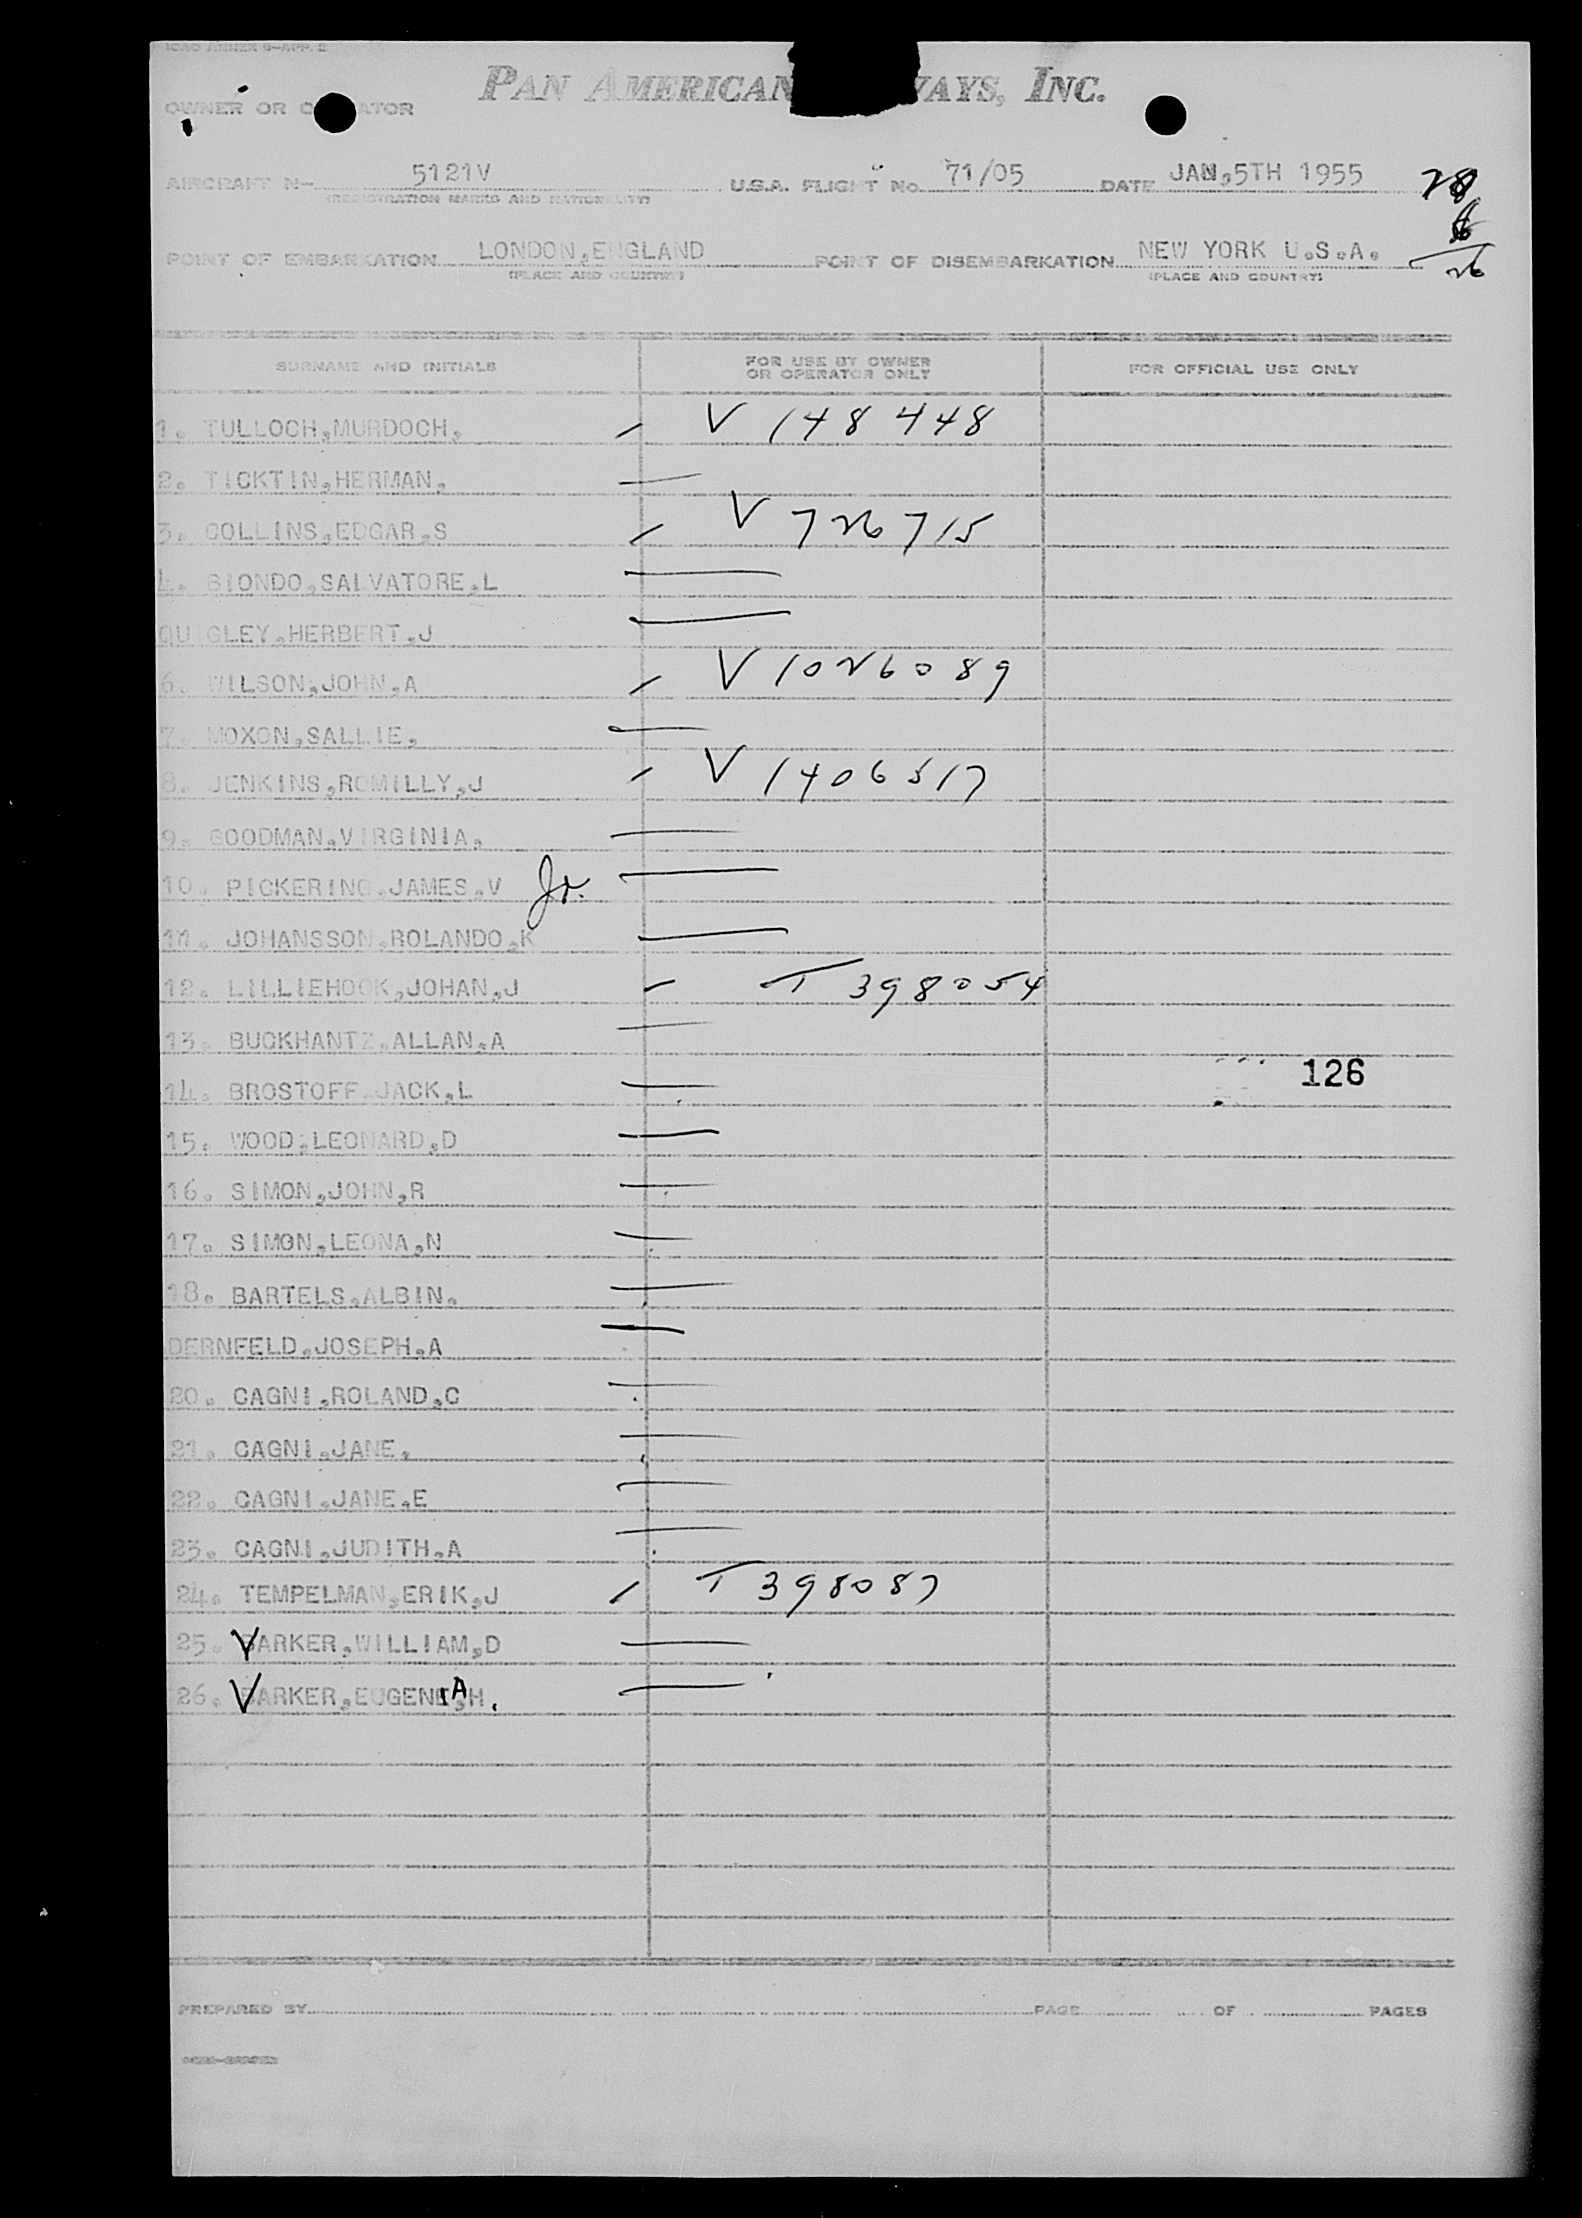 ICAO ANNEX 9—APP. 2
PAN AMERICAN WAYS, INC.
OWNER OR OPERATOR
AIRCRAFT N— 5121V U.S.A. FLIGHT No. 71/05 DATE JAN,5TH 1955
(REGISTRATION MARKS AND NATIONALITY)
28
26
POINT OF EMBARKATION LONDON,ENGLAND POINT OF DISEMBARKATION NEW YORK U.S.A.
(PLACE AND COUNTRY) (PLACE AND COUNTRY)
SURNAME AND INITIALS FOR USE BY OWNER OR OPERATOR ONLY FOR OFFICIAL USE ONLY
1. TULLOCH,MURDOCH, V 148 448
2. TICKTIN,HERMAN,
3. COLLINS,EDGAR,S V 726715
4. BIONDO,SALVATORE,L
QUIGLEY,HERBERT,J
6. WILSON,JOHN,A V 1026089
7. MOXON,SALLIE,
8. JENKINS,ROMILLY,J V 1406517
9. GOODMAN,VIRGINIA,
10. PICKERING,JAMES,V Jr.
11. JOHANSSON,ROLANDO,K
12. LILLIEHOOK,JOHAN,J T 398054
13. BUCKHANTZ,ALLAN,A
126
14. BROSTOFF,JACK,L
15. WOOD,LEONARD,D
16. SIMON,JOHN,R
17. SIMON,LEONA,N
18. BARTELS,ALBIN,
DERNFELD,JOSEPH,A
20. CAGNI,ROLAND,C
21. CAGNI,JANE,
22. CAGNI,JANE,E
23. CAGNI,JUDITH,A
24. TEMPELMAN,ERIK,J T 398087
25. BARKER,WILLIAM,D
26. BARKER,EUGENIA,H.
PREPARED BY PAGE OF PAGES